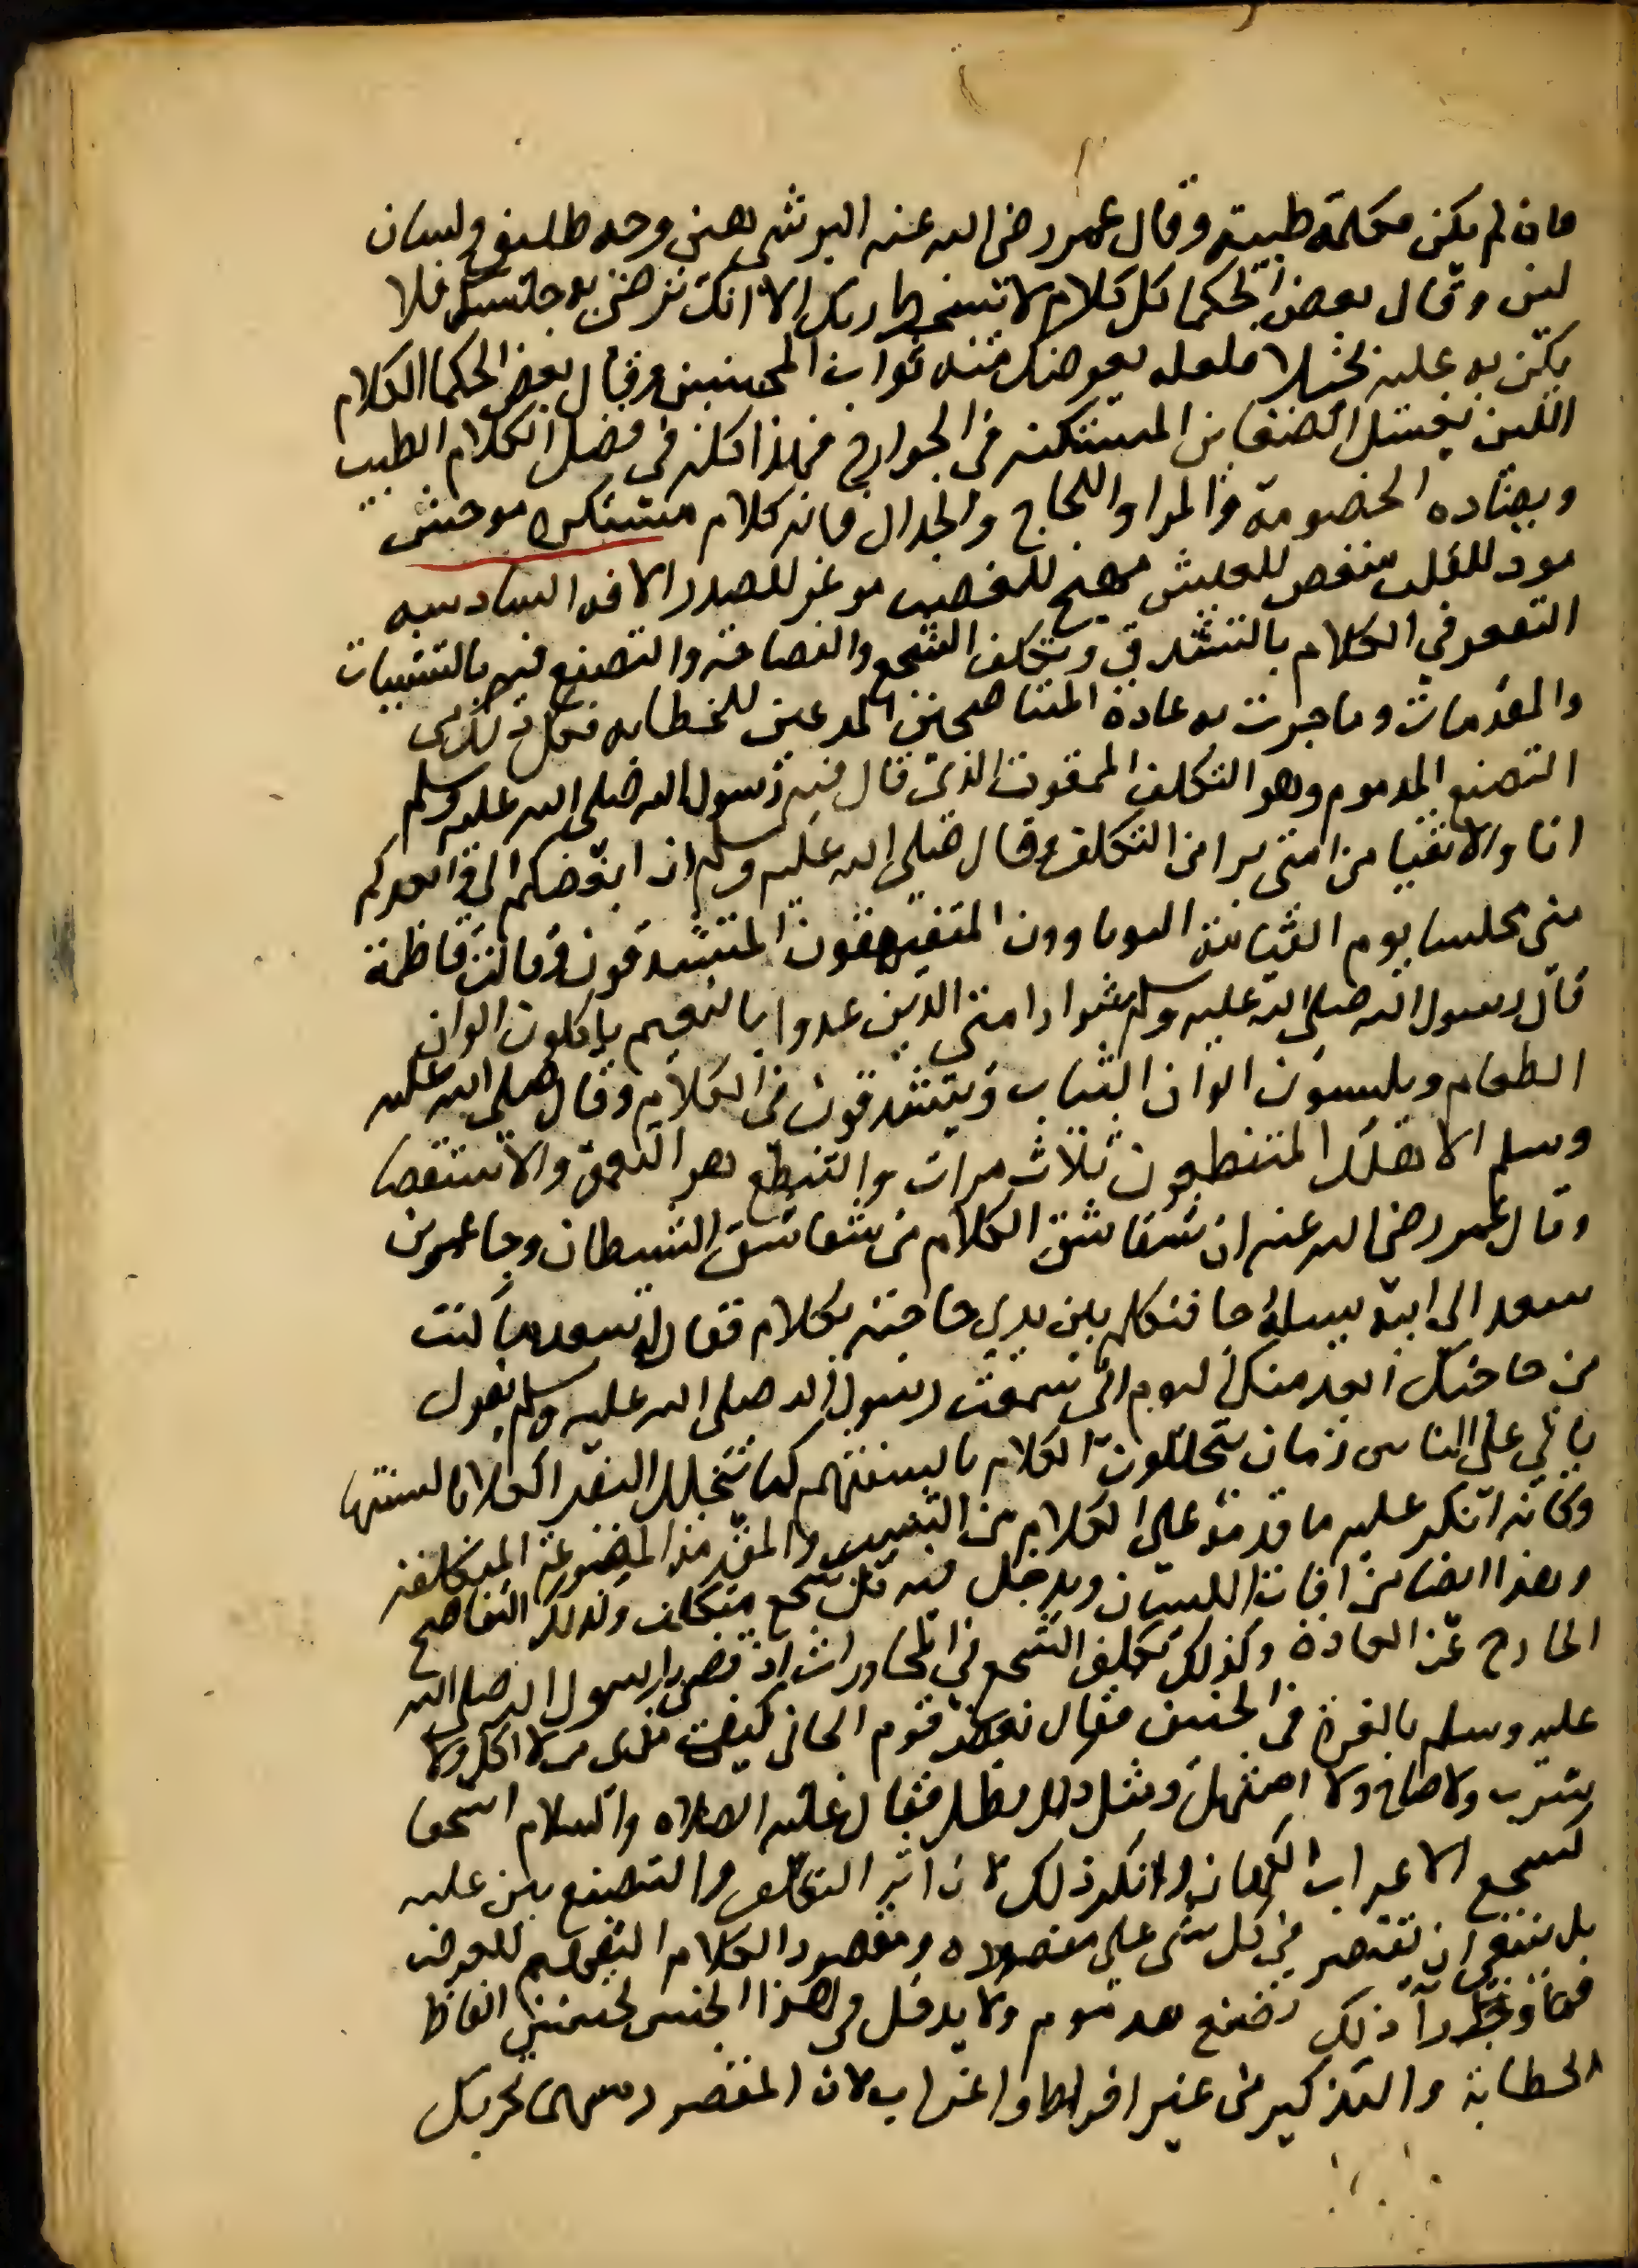 فان لم يكن فكلمة طيبة وقال عمر رضى الله عنه البر شى هين وجه طليق ولسان
لين وقال بعض الحكما كل كلام لا يسخط ربك الا انك ترضى به جليسك فلا
يكن به عليه بخيلا فلعله يعوضك منه ثواب المحسنين وقال بعض الحكما الكلام
اللين يغسل الضغاين المستكنه في الجوارح فهذا كله في فضل الكلام الطيب
ويضاده الخصومة والمرا واللجاج والجدال فانه كلام مستنكره موحش
موذ للقلب منغص للعيش مهيج للغضب موغر للصدر الافه السادسه
التقعر في الكلام بالتشدق وتكلف السجع والفصاحة والتصنع فيه بالتشبيبات
والمقدمات وما جرت به عادة المتفاصحين المدعين للخطابه فكل ذلك من
التصنع المذموم وهو التكلف الممقوت الذي قال فيه رسول الله صلى الله عليه وسلم
انا والاتقيا من امتي برا من التكلف وقال صلى الله عليه وسلم ان ابغضكم الي وابعدكم
مني مجلسا يوم القيامة الثرثارون المتفيهقون المتشدقون وقالت فاطمة
قال رسول الله صلى الله عليه وسلم شرار امتي الذين غدوا بالنعيم ياكلون الوان
الطعام ويلبسون الوان الثياب ويتشدقون في الكلام وقال صلى الله عليه
وسلم الا هلك المتنطعون ثلاث مرات والتنطع هو التعمق والاستقصا
وقال عمر رضى الله عنه ان شقاشق الكلام من شقاشق الشيطان وجا عمر بن
سعد الى ابيه يسله حا فتكلم بين يدي حاجته بكلام فقال له سعد ما كنت
من حاجتك ابعد منك اليوم اني سمعت رسول الله صلى الله عليه وسلم يقول
ياتي على الناس زمان يتخللون الكلام بالسنتهم كما تتخلل البقر الكلا بالسنتها
وكانه انكر عليه ما قدمه على الكلام من التشبيب والمقدمة المصنوعة المتكلفه
وهذا ايضا من افات اللسان ويدخل فيه كل سجع متكلف وكذلك التفاصح
الخارج عن العادة وكذلك تكلف السجع في المحاورات اذ قضى رسول الله صلى الله
عليه وسلم بالغرة في الجنين فقال بعض قوم الجاني كيف ندى من لا اكل ولا
شرب ولا صاح ولا استهل ومثل ذلك يطل فقال عليه الصلاه والسلام اسجعا
كسجع الاعراب الكهان وانكر ذلك لان اثر التكلف والتصنع بين عليه
بل ينبغي ان نقتصر في كل شى على مقصوده ومقصود الكلام التفهيم للغرض
فما ورا ذلك تصنع مذموم ولا يدخل في هذا الجنس تحسين الفاظ
الخطابة والتذكير من غير افراط واغراب لان المقصود منهما تحريك